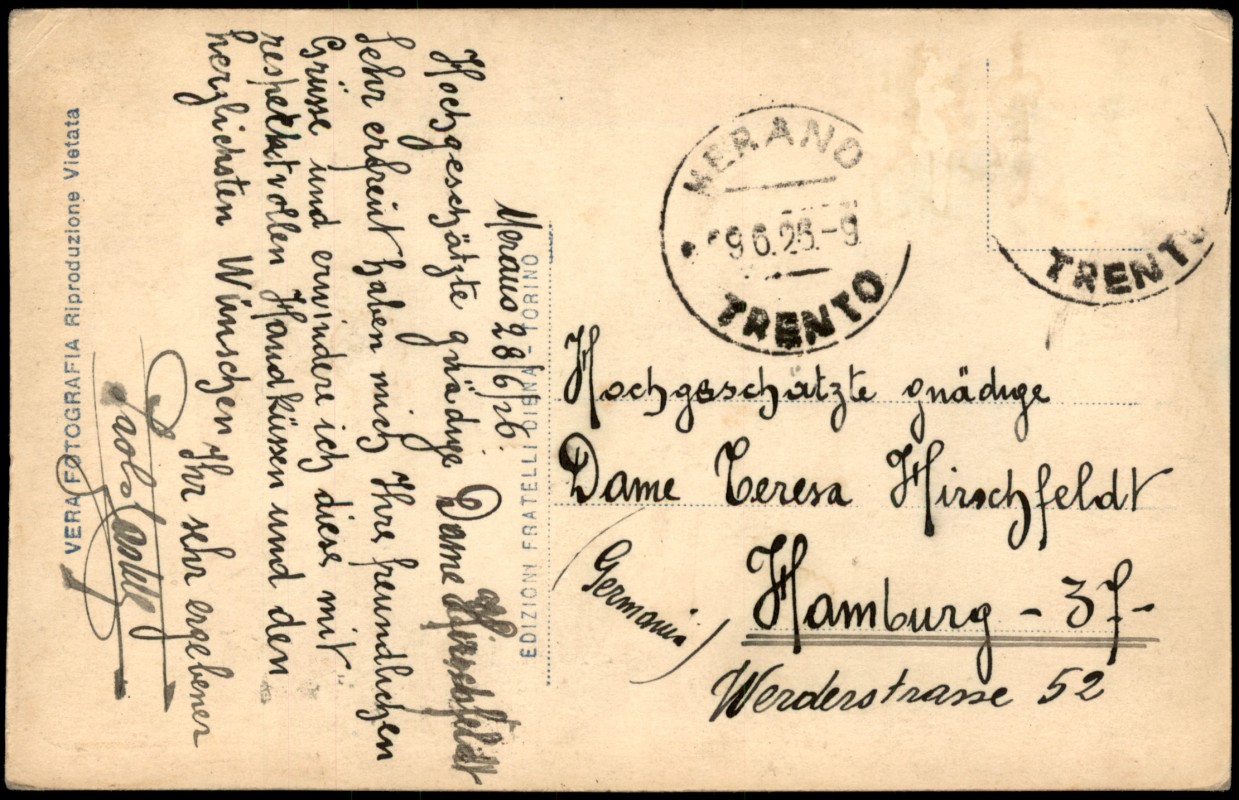 Meraus 28/6/26.
Hochgeschätzte gnädige Dame Hirschfeldt
Sehr erfreut haben mich Ihre freundlichen
Grüsse und erwindere ich diese mit
respektvollen Handküssen und den
herzlichsten Wünschen
Ihr sehr ergebener
VERA FOTOGRAFIA Riproduzione Vietata
EDIZIONI FRATELLI DISNA - TORINO
MERANO
9 6.26.-9
TRENTO
TRENTO
Hochgeschatzte gnädige
Dame Teresa Hirschfeldt
Hamburg - 37-
(Germania)
Werderstrasse 52